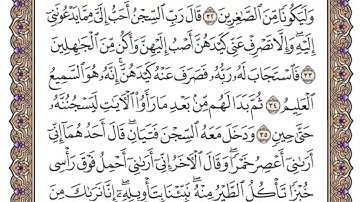 وَلَيَكُونًا مِّنَ ٱلصَّٰغِرِينَ ٣٢ قَالَ رَبِّ ٱلسِّجْنُ أَحَبُّ إِلَىَّ مِمَّا يَدْعُونَنِىٓ
إِلَيْهِ ۖ وَإِلَّا تَصْرِفْ عَنِّى كَيْدَهُنَّ أَصْبُ إِلَيْهِنَّ وَأَكُن مِّنَ ٱلْجَٰهِلِينَ
٣٣ فَٱسْتَجَابَ لَهُۥ رَبُّهُۥ فَصَرَفَ عَنْهُ كَيْدَهُنَّ ۚ إِنَّهُۥ هُوَ ٱلسَّمِيعُ
ٱلْعَلِيمُ ٣٤ ثُمَّ بَدَا لَهُم مِّنۢ بَعْدِ مَا رَأَوُا۟ ٱلْءَايَٰتِ لَيَسْجُنُنَّهُۥ
حَتَّىٰ حِينٍ ٣٥ وَدَخَلَ مَعَهُ ٱلسِّجْنَ فَتَيَانِ ۖ قَالَ أَحَدُهُمَآ إِنِّىٓ
أَرَىٰنِىٓ أَعْصِرُ خَمْرًا ۖ وَقَالَ ٱلْءَاخَرُ إِنِّىٓ أَرَىٰنِىٓ أَحْمِلُ فَوْقَ رَأْسِى
خُبْزًا تَأْكُلُ ٱلطَّيْرُ مِنْهُ ۖ نَبِّئْنَا بِتَأْوِيلِهِۦٓ ۖ إِنَّا نَرَىٰكَ مِنَ